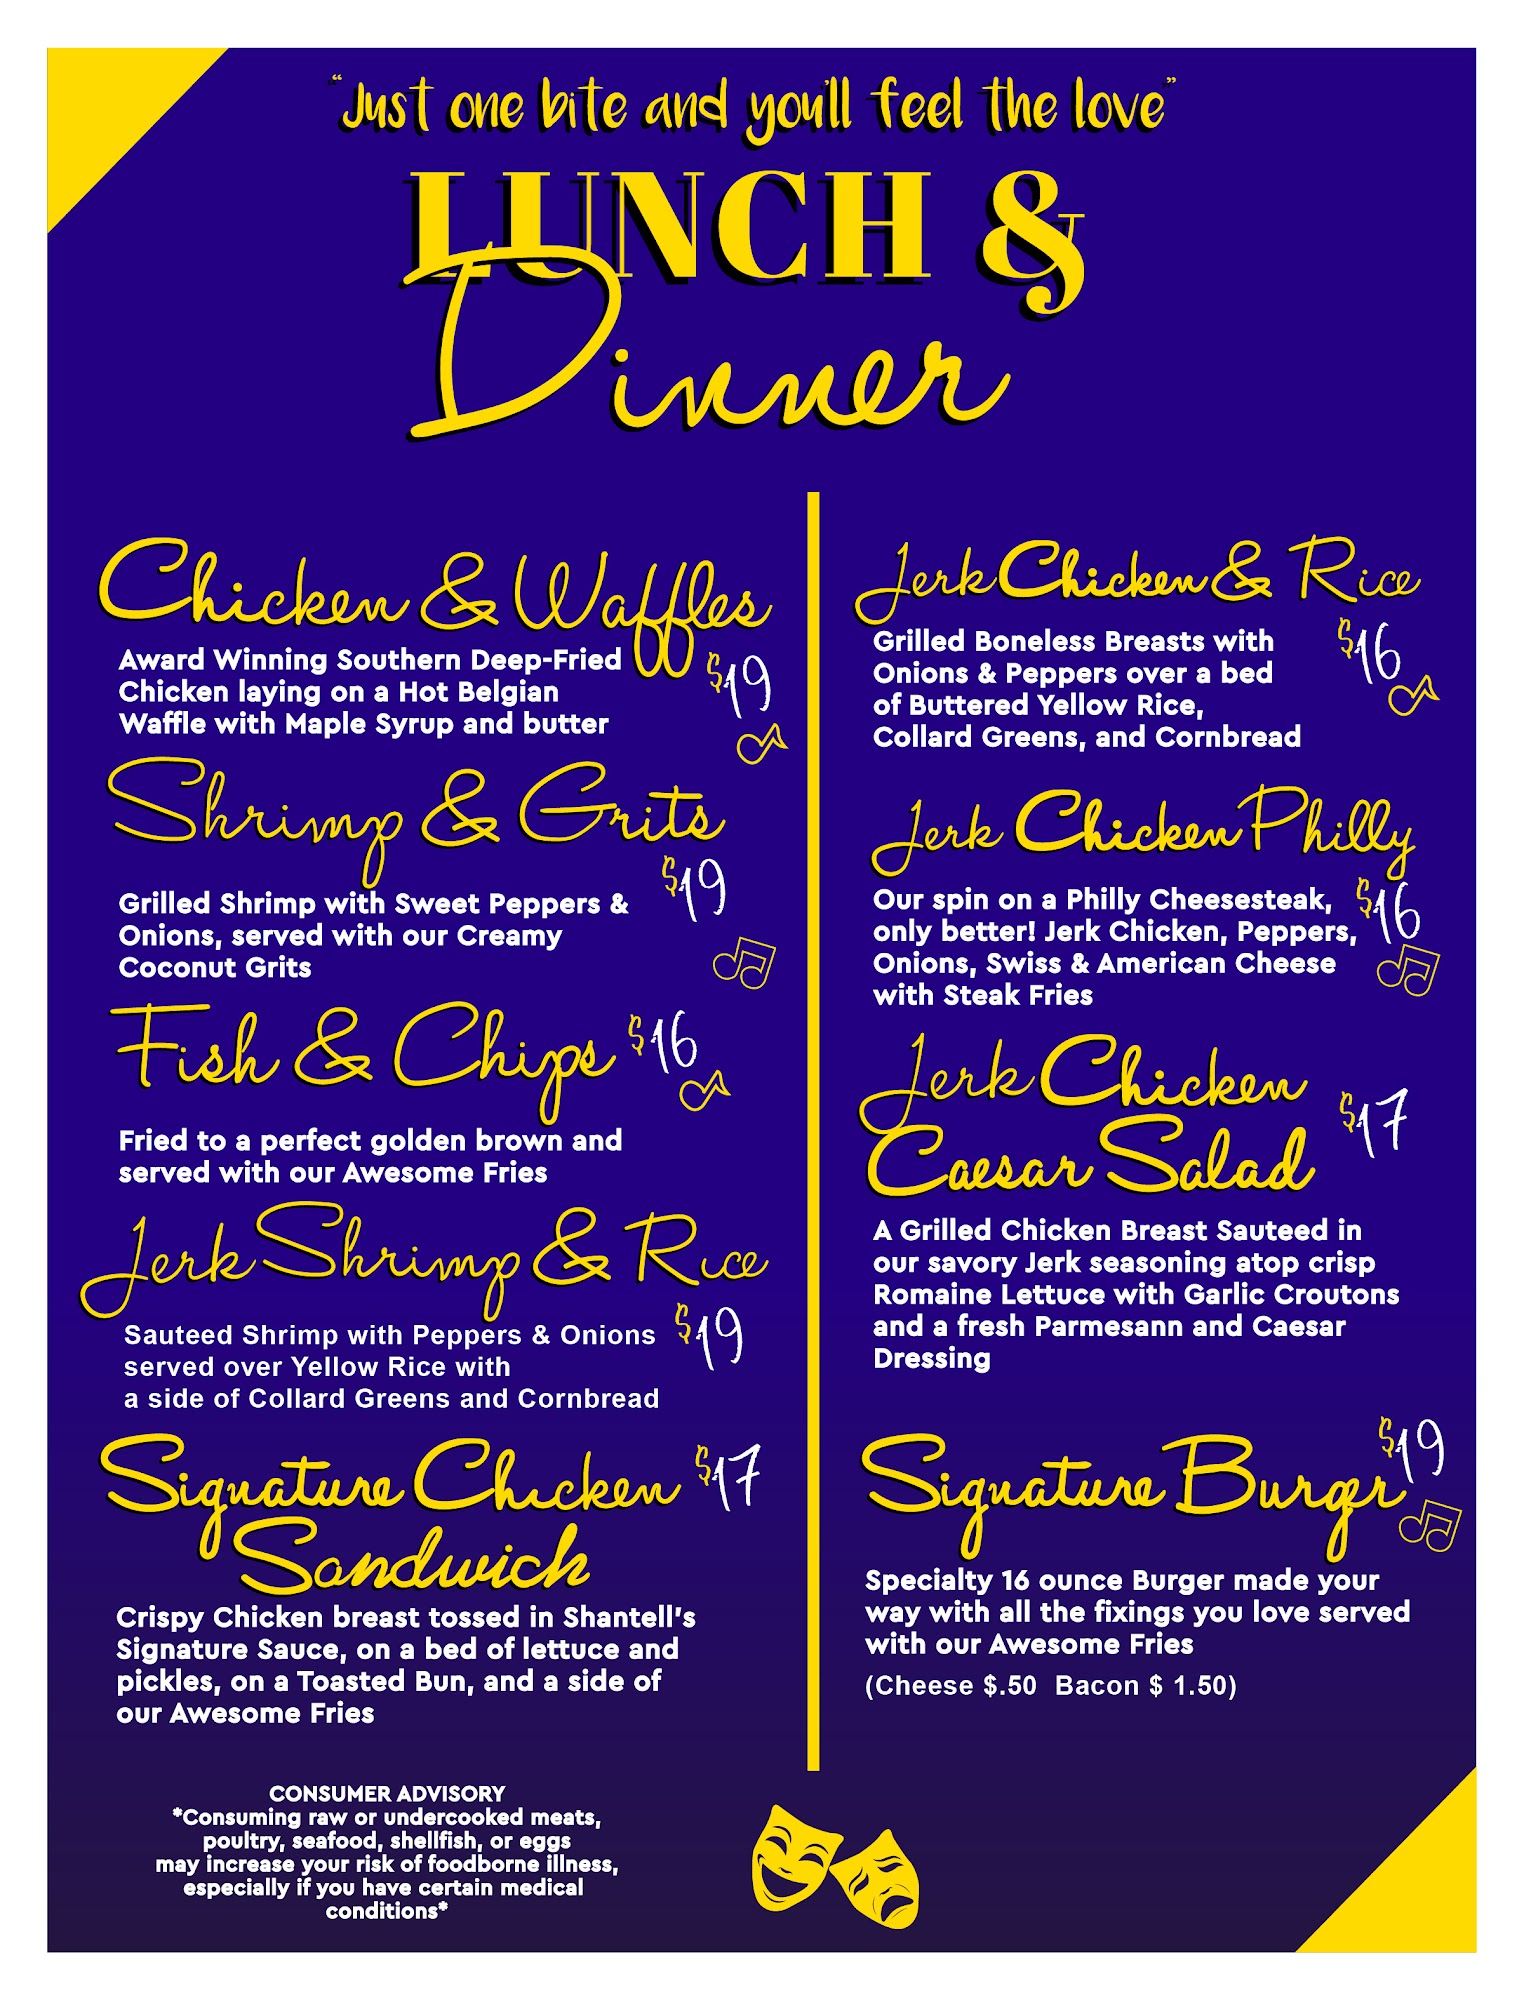 “Just one bite and you'll feel the love”
LUNCH &
Dinner
Chicken & Waffles
Award Winning Southern Deep-Fried
Chicken laying on a Hot Belgian
Waffle with Maple Syrup and butter
$19
Shrimp & Grits
$19
Grilled Shrimp with Sweet Peppers &
Onions, served with our Creamy
Coconut Grits
Fish & Chips $16
Fried to a perfect golden brown and
served with our Awesome Fries
Jerk Shrimp & Rice
$19
Sauteed Shrimp with Peppers & Onions
served over Yellow Rice with
a side of Collard Greens and Cornbread
Signature Chicken $17
Sandwich
Crispy Chicken breast tossed in Shantell's
Signature Sauce, on a bed of lettuce and
pickles, on a Toasted Bun, and a side of
our Awesome Fries
Jerk Chicken & Rice
$16
Grilled Boneless Breasts with
Onions & Peppers over a bed
of Buttered Yellow Rice,
Collard Greens, and Cornbread
Jerk Chicken Philly
$16
Our spin on a Philly Cheesesteak,
only better! Jerk Chicken, Peppers,
Onions, Swiss & American Cheese
with Steak Fries
Jerk Chicken
Caesar Salad
$17
A Grilled Chicken Breast Sauteed in
our savory Jerk seasoning atop crisp
Romaine Lettuce with Garlic Croutons
and a fresh Parmesann and Caesar
Dressing
Signature Burger $19
Specialty 16 ounce Burger made your
way with all the fixings you love served
with our Awesome Fries
(Cheese $.50 Bacon $ 1.50)
CONSUMER ADVISORY
*Consuming raw or undercooked meats,
poultry, seafood, shellfish, or eggs
may increase your risk of foodborne illness,
especially if you have certain medical
conditions*